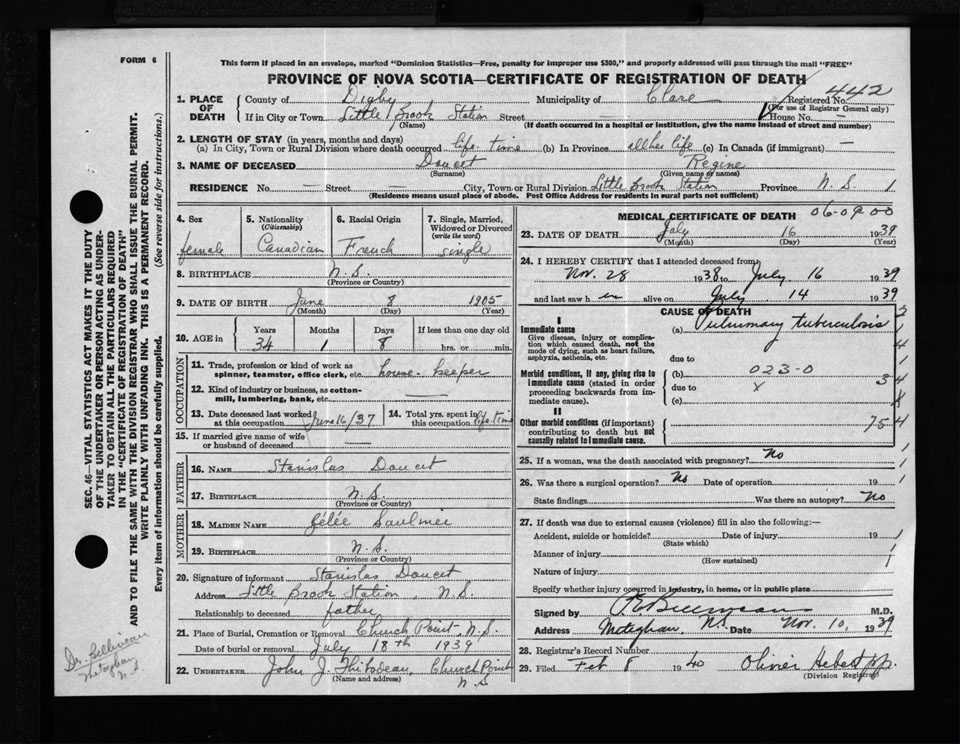 FORM 6
This form if placed in an envelope, marked "Dominion Statistics—Free, penalty for improper use $300," and properly addressed will pass through the mail "FREE"
PROVINCE OF NOVA SCOTIA—CERTIFICATE OF REGISTRATION OF DEATH
1. PLACE OF DEATH County of Digby Municipality of Clare Registered No. 442
(For use of Registrar General only)
If in City or Town Little Brook Station Street House No. —
(Name) (If death occurred in a hospital or institution, give the name instead of street and number)
2. LENGTH OF STAY (in years, months and days)
(a) In City, Town or Rural Division where death occurred life-time (b) In Province all her life (c) In Canada (if immigrant) —
3. NAME OF DECEASED Doucet Regine
(Surname) (Given name or names)
RESIDENCE No. — Street — City, Town or Rural Division Little Brook Station Province N.S. 1
(Residence means usual place of abode. Post Office Address for residents in rural parts not sufficient)
4. Sex female
5. Nationality (Citizenship) Canadian
6. Racial Origin French
7. Single, Married, Widowed or Divorced (write the word) single
8. BIRTHPLACE N.S.
(Province or Country)
9. DATE OF BIRTH June 8 1905
(Month) (Day) (Year)
10. AGE in Years Months Days If less than one day old
34 1 8 hrs. or min.
OCCUPATION
11. Trade, profession or kind of work as spinner, teamster, office clerk, etc. house-keeper
12. Kind of industry or business, as cotton-mill, lumbering, bank, etc. —
13. Date deceased last worked at this occupation June 16/37
14. Total yrs. spent in this occupation life-time
15. If married give name of wife or husband of deceased —
FATHER
16. NAME Stanislas Doucet
17. BIRTHPLACE N.S.
(Province or Country)
MOTHER
18. MAIDEN NAME Saulnier
19. BIRTHPLACE N.S.
(Province or Country)
20. Signature of informant Stanislas Doucet
Address Little Brook Station, N.S.
Relationship to deceased father
21. Place of Burial, Cremation or Removal Church Point, N.S.
Date of burial or removal July 18th 1939
22. UNDERTAKER John J. Thibodeau, Church Point
(Name and address) N.S
MEDICAL CERTIFICATE OF DEATH 06-09-00
23. DATE OF DEATH July 16 1939
(Month) (Day) (Year)
24. I HEREBY CERTIFY that I attended deceased from
Nov. 28 1938 to July 16 1939
and last saw her alive on July 14 1939
CAUSE OF DEATH
I
Immediate cause (a) Pulmonary tuberculosis
Give disease, injury or complication which caused death, not the mode of dying, such as heart failure, asphyxia, asthenia, etc.
due to
Morbid conditions, if any, giving rise to immediate cause (stated in order proceeding backwards from immediate cause). (b) 023-0
due to x
(c)
II
Other morbid conditions (if important) contributing to death but not causally related to immediate cause.
2
4
1
34
8
754
1
25. If a woman, was the death associated with pregnancy? No
26. Was there a surgical operation? No Date of operation 19
State findings Was there an autopsy? No
27. If death was due to external causes (violence) fill in also the following:—
Accident, suicide or homicide? Date of injury 19
(State which)
Manner of injury
(How sustained)
Nature of injury
Specify whether injury occurred in industry, in home, or in public place
Signed by M.D.
Address Meteghan, N.S. Date Nov. 10, 1939
28. Registrar's Record Number
29. Filed Feb 8 1940 Olivier
(Division Registrar)
SEC. 46—VITAL STATISTICS ACT MAKES IT THE DUTY
OF THE UNDERTAKER OR PERSON ACTING AS UNDER-
TAKER TO OBTAIN ALL THE PARTICULARS REQUIRED
IN THE "CERTIFICATE OF REGISTRATION OF DEATH"
AND TO FILE THE SAME WITH THE DIVISION REGISTRAR WHO SHALL ISSUE THE BURIAL PERMIT.
WRITE PLAINLY WITH UNFADING INK. THIS IS A PERMANENT RECORD.
Every item of information should be carefully supplied. (See reverse side for instructions.)
Dr. Belliveau
Meteghan
N.S